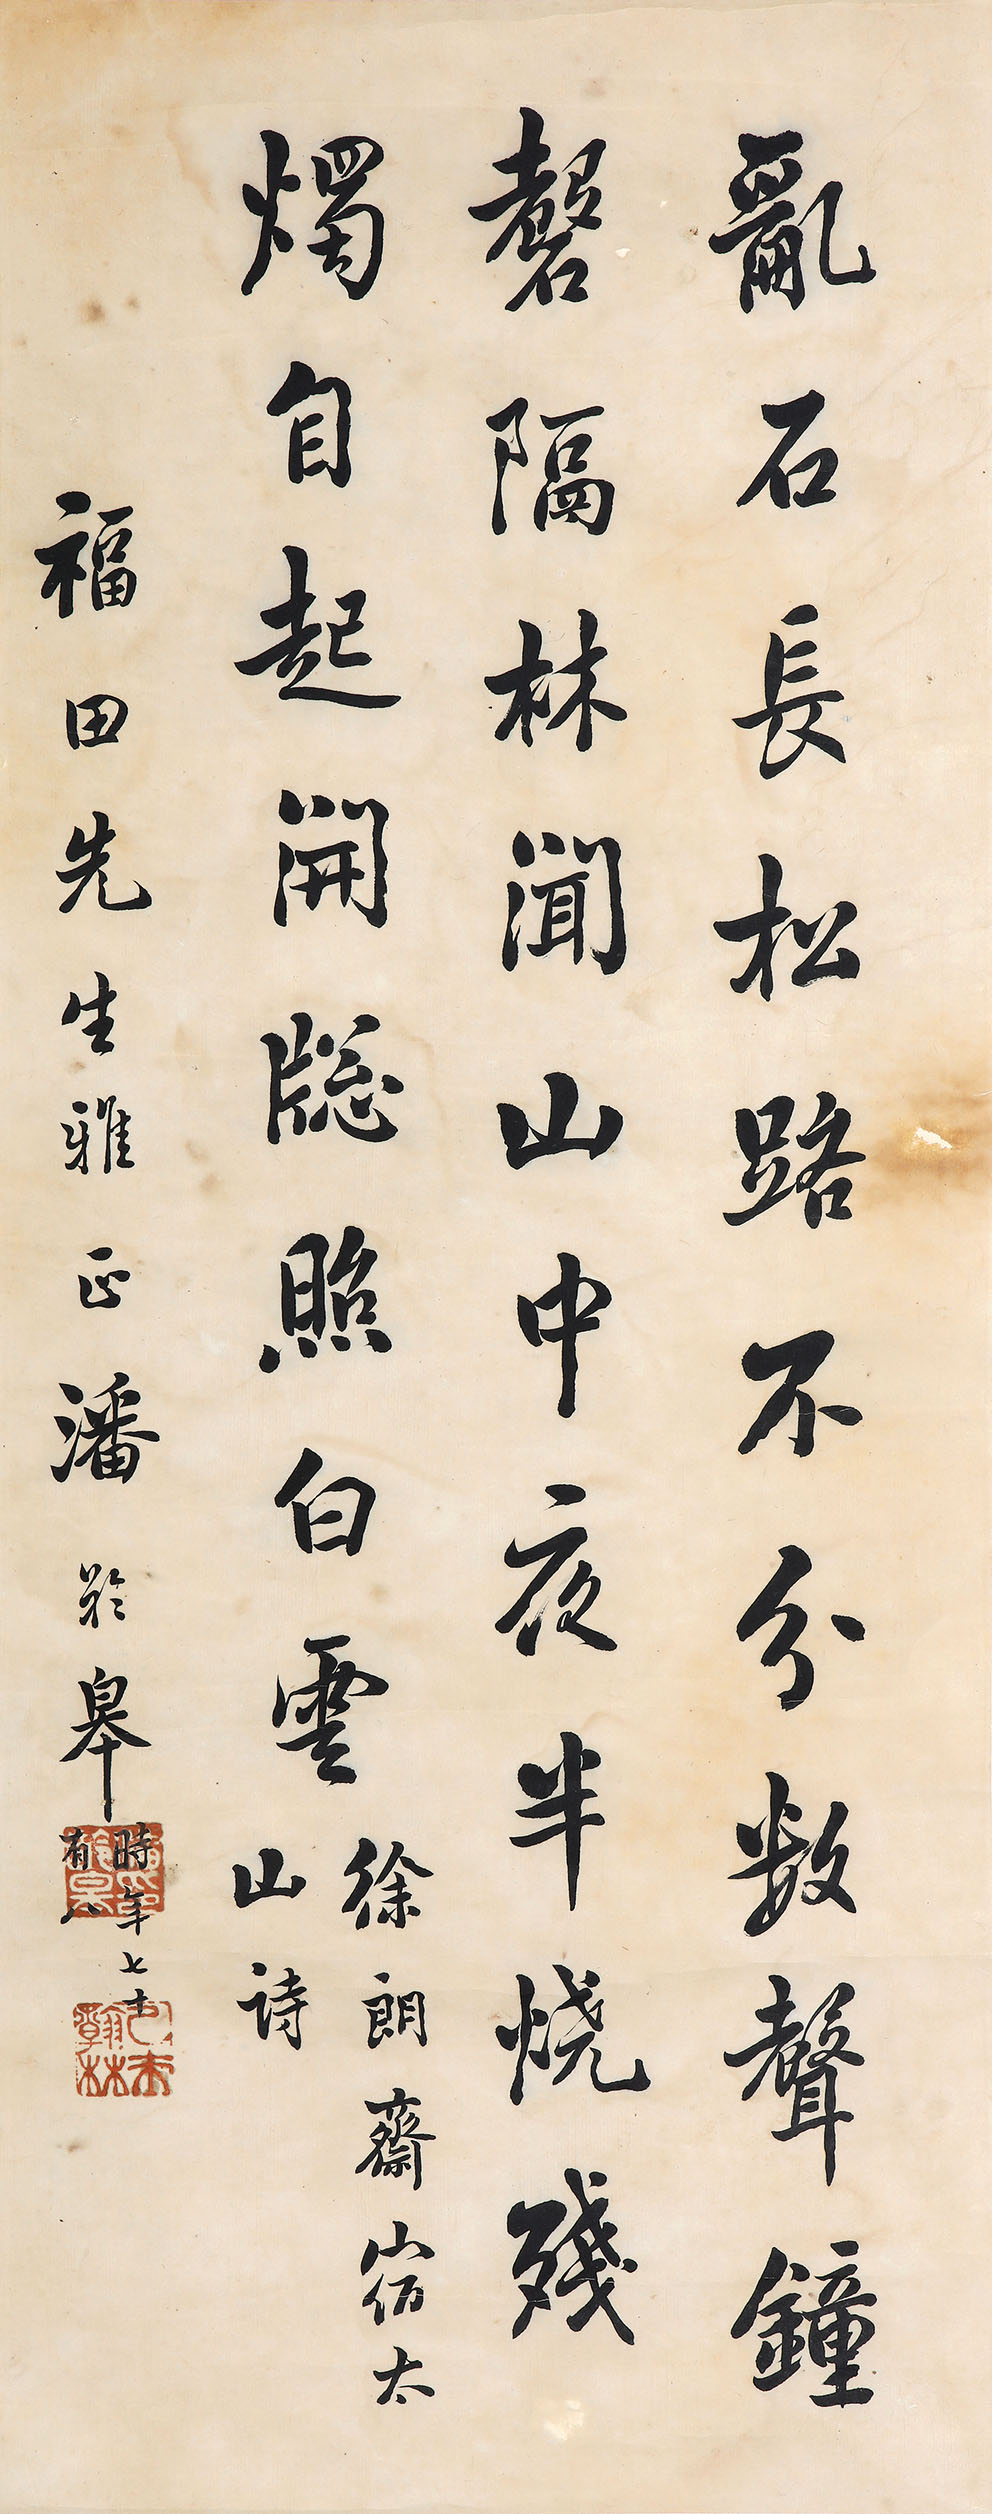 亂石長松路不分數聲鐘
磬隔林聞山中夜半燒殘
燭自起開牕照白雲
徐朗齋宿太
山诗
福田先生雅正潘齡皋
時年七十
有八
潘齡皋印
翰林